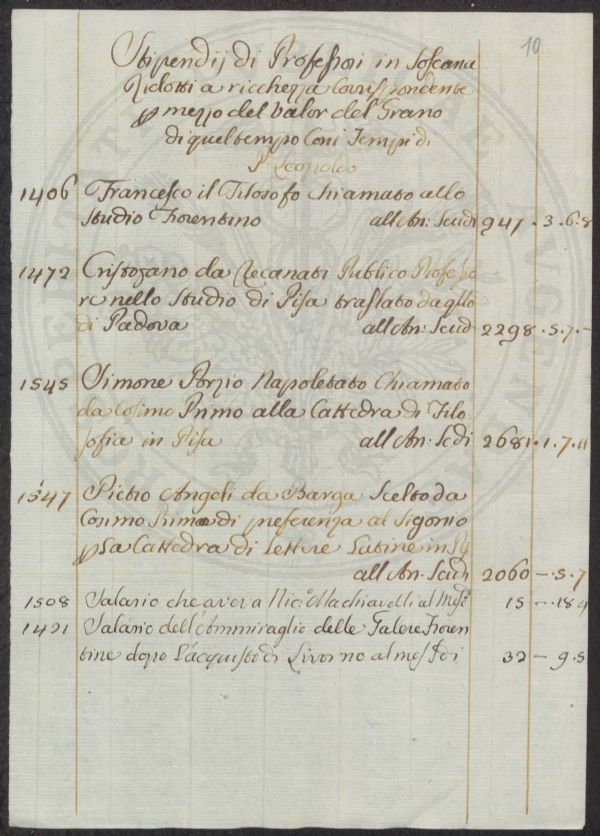 10
Stipendij di Professori in Toscana
Ridotti a ricchezza Corrispondente
p mezzo del valor del Grano
di quel tempo Coni Tempi di
P. Leopoldo
1406 Francesco il Filosofo chiamato allo
Studio Fiorentino all An: Scudi 947.3.6.8
1472 Cristofano da Recanati Publico Professo
re nello Studio di Pisa traslato da qllo
di Padova all An: Scud 2298.5.7.-
1545 Simone Porzio Napoletato Chiamato
da Cosimo Primo alla Cattedra di Filo
sofia in Pisa all An. Scdi 2681.1.7.11
1547 Pietro Angeli da Barga Scelto da
Cosimo Primo di preferenza al Sigonio
p La Cattedra di Lettere Latine in
all An. Scudi 2060-.5.7
1508 Salario che aveva Nic.o Machiavelli al Mese 15-.18.4
1421 Salario dell'Ammiraglio delle Galere Fioren
tine dopo L'acquisto di Livorno al mese di 32-9.5